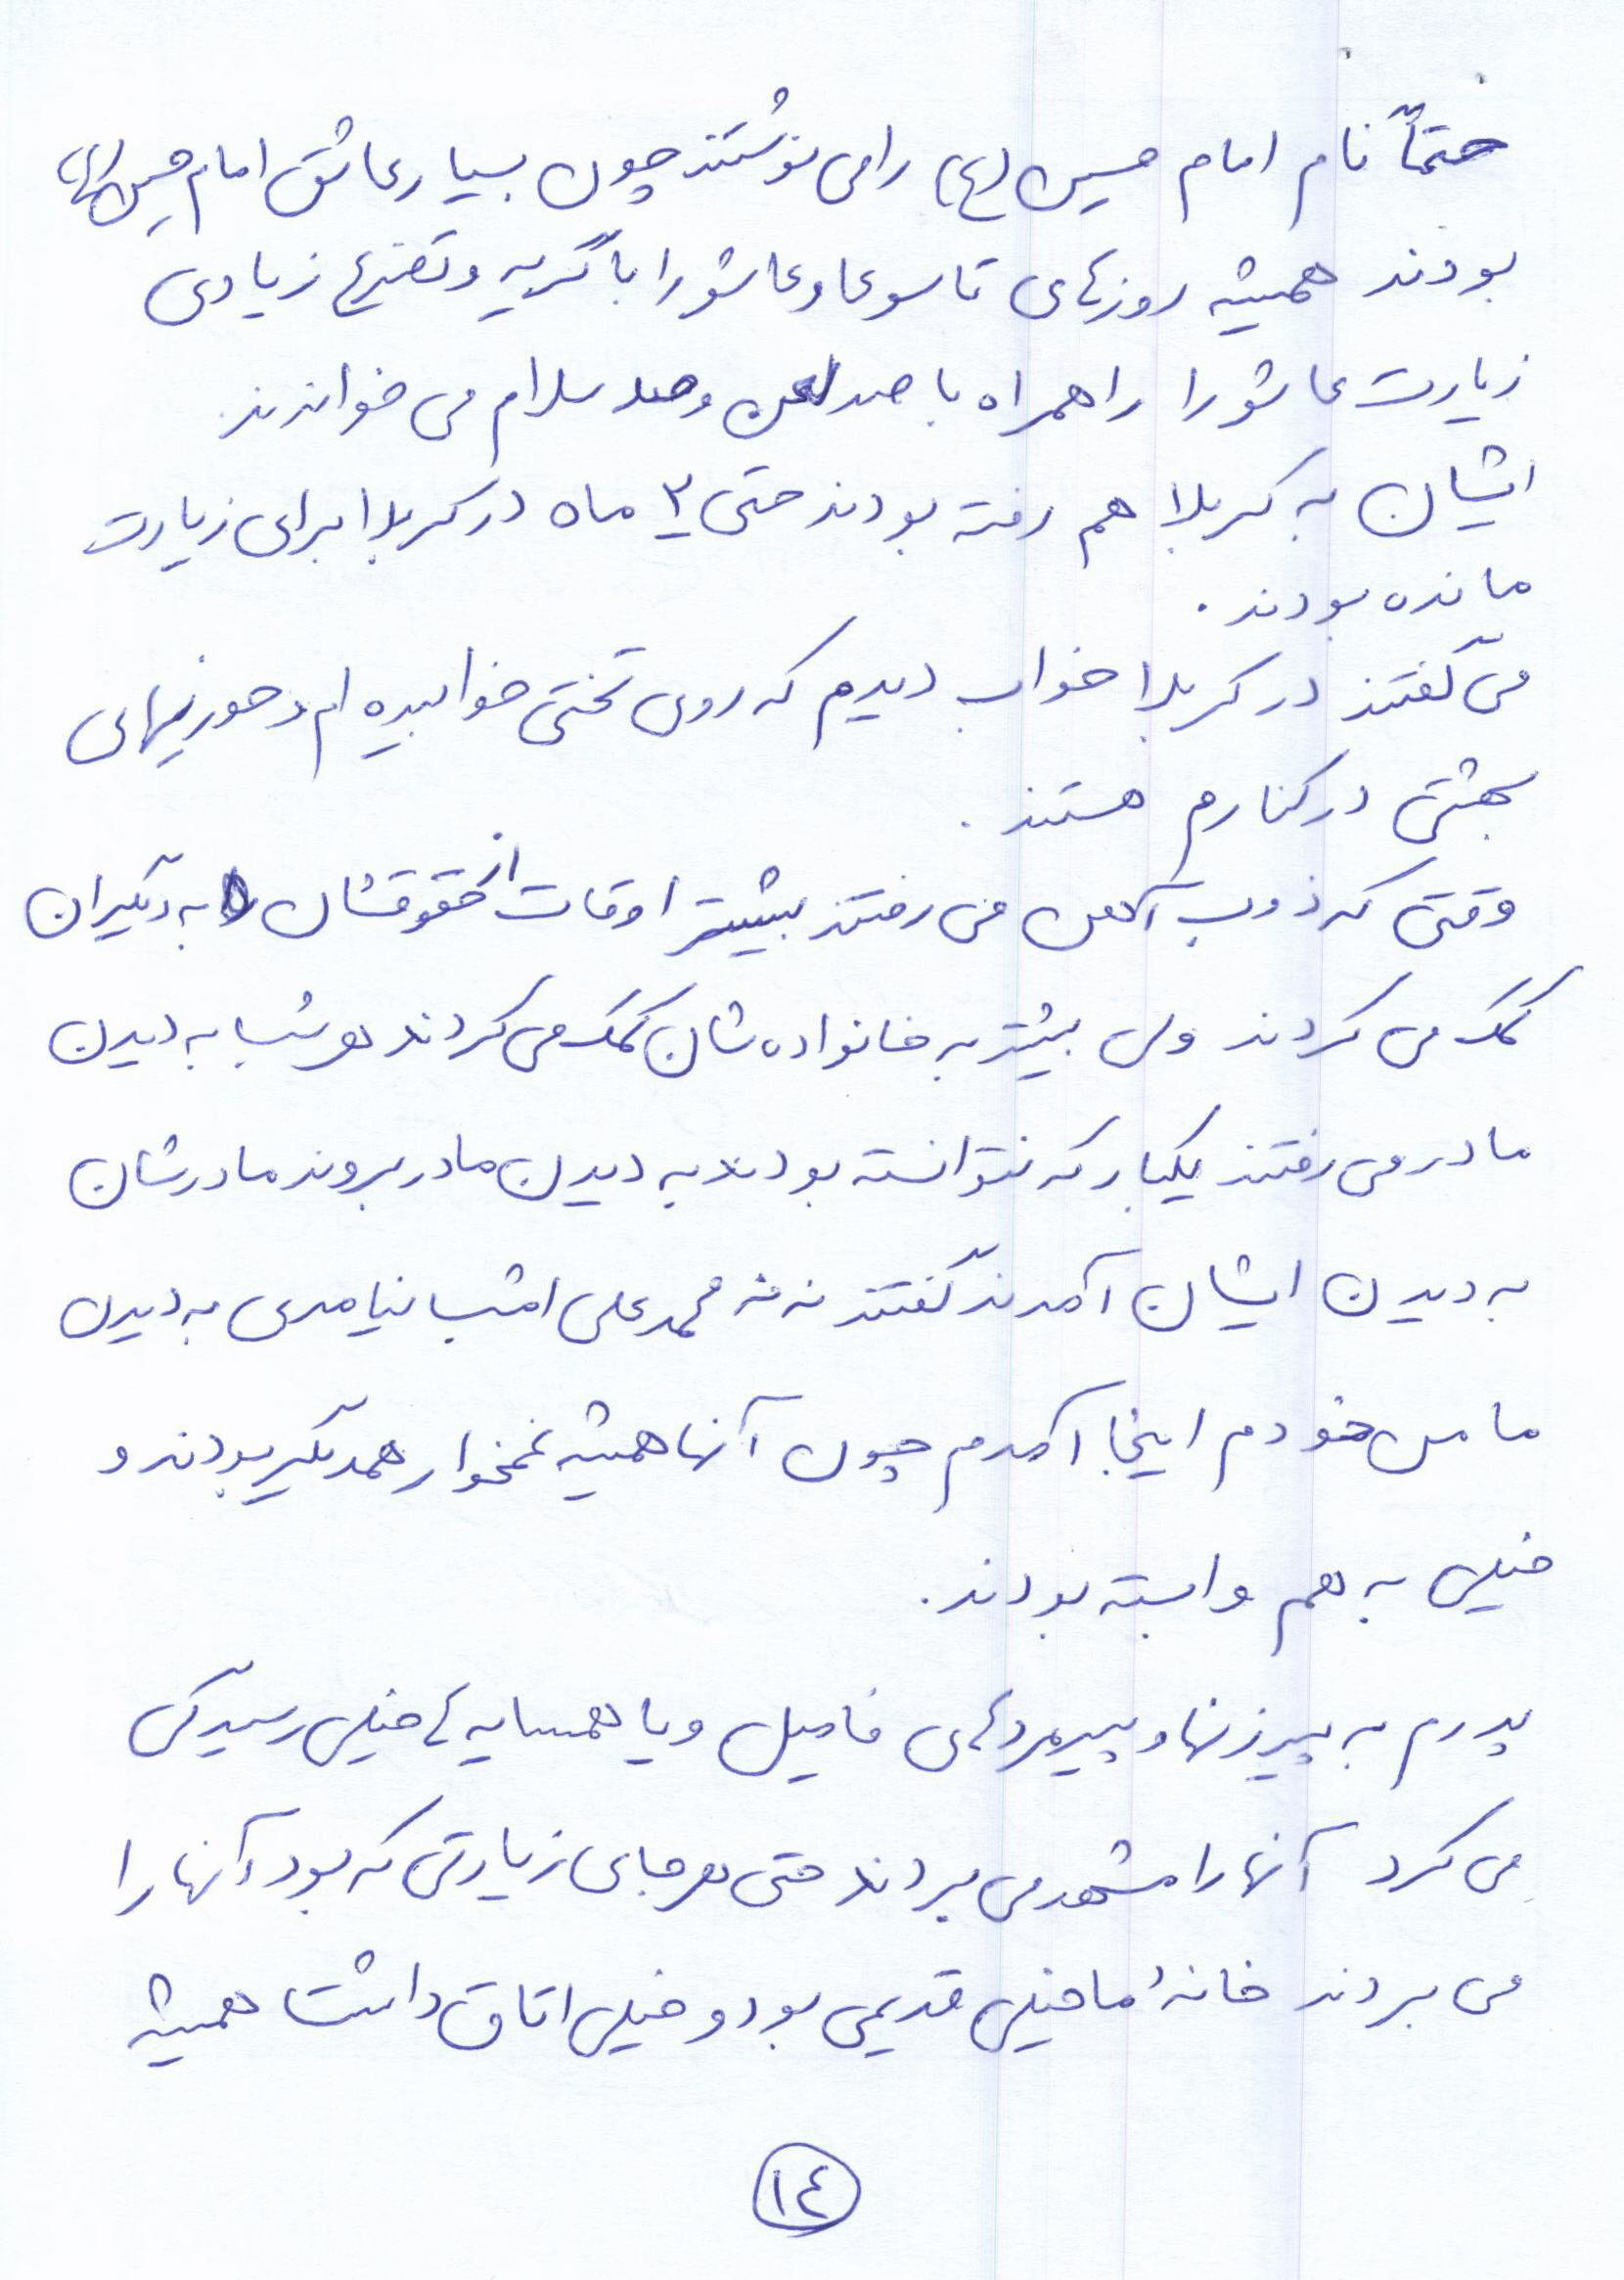 حتماً نام امام حسین (ع) را می نوشتند چون بسیار عاشق امام حسین (ع)
بودند همیشه روزهای تاسوعا و عاشورا با گریه و تضرع زیادی
زیارت عاشورا را همراه با صد لعن و صد سلام می خواندند.
ایشان به کربلا هم رفته بودند حتی ۲ ماه در کربلا برای زیارت
مانده بودند.
می گفتند در کربلا خواب دیدم که روی تختی خوابیده ام و حوریهای
بهشتی در کنارم هستند.
وقتی که ذوب آهن می رفتند بیشتر اوقات از حقوقشان به دیگران
کمک می کردند ولی بیشتر به خانواده شان کمک می کردند هر شب به دیدن
مادر می رفتند یکبار که نتوانسته بودند به دیدن مادر بروند مادرشان
به دیدن ایشان آمدند گفتند ننه محمد علی امشب نیامدی به دیدن
ما من خودم اینجا آمدم چون آنها همیشه غمخوار همدیگر بودند و
خیلی به هم وابسته بودند.
پدرم به پیرزنها و پیرمردهای فامیل و یا همسایه ها خیلی رسیدگی
می کرد آنها را مشهد می بردند حتی هر جای زیارتی که بود آنها را
می بردند خانهٔ ما خیلی قدیمی بود و خیلی اتاق داشت همیشه
۱۴